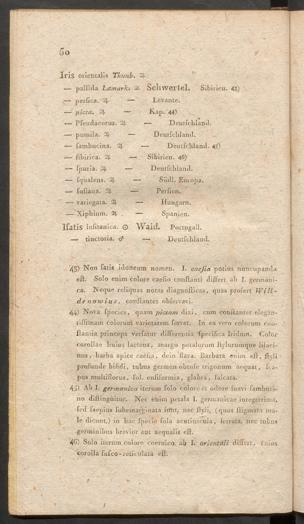 50
Iris orientalis Thunb. ♃
— pallida Lamark. ♃ Schwertel. Sibirien. 42)
— persica. ♃ — Levante.
— picta. ♃ — Kap. 44)
— Pseudacorus. ♃ — Deutschland.
— pumila. ♃ — Deutschland.
— sambucina. ♃ — Deutschland. 45)
— sibirica. ♃ — Sibirien. 46)
— spuria. ♃ — Deutschland.
— squalens. ♃ — Südl. Europa.
— susiana. ♃ — Persien.
— variegata. ♃ — Hungarn.
— Xiphium. ♃ — Spanien.
Isatis lusitanica. ⊙ Waid. Portugall.
— tinctoria. ♂ — Deutschland.
43) Non satis idoneum nomen. I. caesia potius nuncupanda
est. Solo enim colore caesio constanti differt ab I. germani-
ca. Neque reliquas notas diagnosticas, quas profert Will-
denowius, constantes observavi.
44) Nova species, quam pictam dixi, cum constanter elegan-
tissimam colorum varietatem servet. In ea vero colorum con-
stantia praecipua versatur differentia specifica Iridum. Color
corollae huius lacteus, margo petalorum stylorumque lilaci-
nus, barba apice caesia, dein flava. Barbata enim est, styli
profunde bifidi, tubus germen obtuse trigonum aequat, sca-
pus multiflorus, fol. ensiformia, glabra, falcata.
45) Ab I. germanica iterum solo colore et odore flavi sambuci-
no distinguitur. Nec enim petala I. germanicae integerrima,
sed saepius subemarginata sunt, nec styli, (quos stigmata ma-
le dicunt,) in hac specie sola acutiuscula, serrata, nec tubus
germinibus brevior aut aequalis est.
46) Solo iterum colore coeruleo ab I. orientali differt, cuius
corolla fusco-reticulata est.